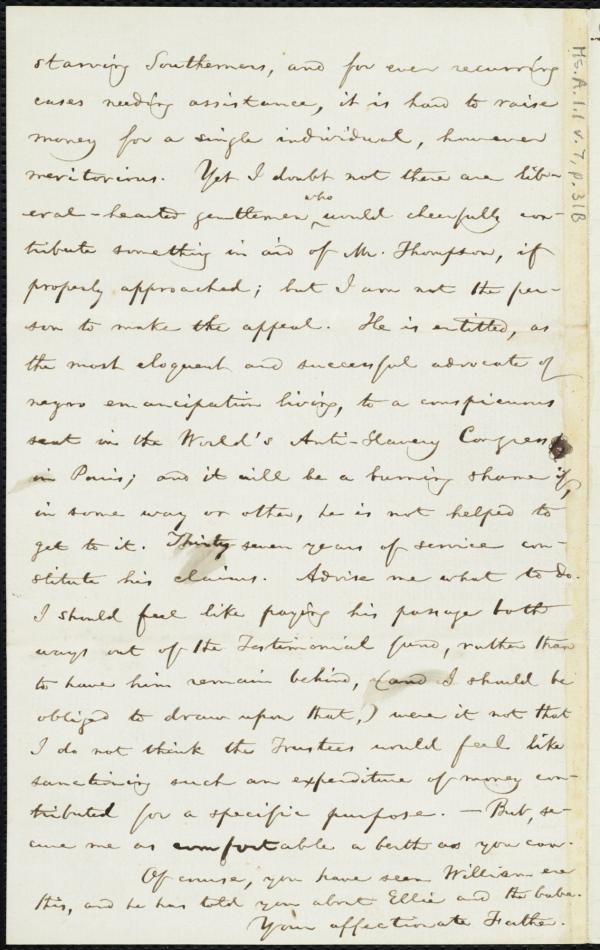 starving Southerners, and for ever recurring
cases needing assistance, it is hard to raise
money for a single individual, however
meritorious. Yet I doubt not there are lib-
eral-hearted gentlemen who would cheerfully con-
tribute something in aid of Mr. Thompson, if
properly approached; but I am not the per-
son to make the appeal. He is entitled, as
the most eloquent and successful advocate of
negro emancipation living, to a conspicuous
seat in the World's Anti-Slavery Congress
in Paris; and it will be a burning shame if,
in some way or other, he is not helped to
get to it. Thirty seven years of service con-
stitute his claims. Advise me what to do.
I should feel like paying his passage both
ways out of the Testimonial fund, rather than
to have him remain behind, (and I should be
obliged to draw upon that,) were it not that
I do not think the Trustees would feel like
sanctioning such an expenditure of money con-
tributed for a specific purpose. — But, se-
cure me as comfortable a berth as you can.
Of course, you have seen William ere
this, and he has told you about Ellie and the babe.
Your affectionate Father.
Ms. A. 1.1 v. 7, p. 31B